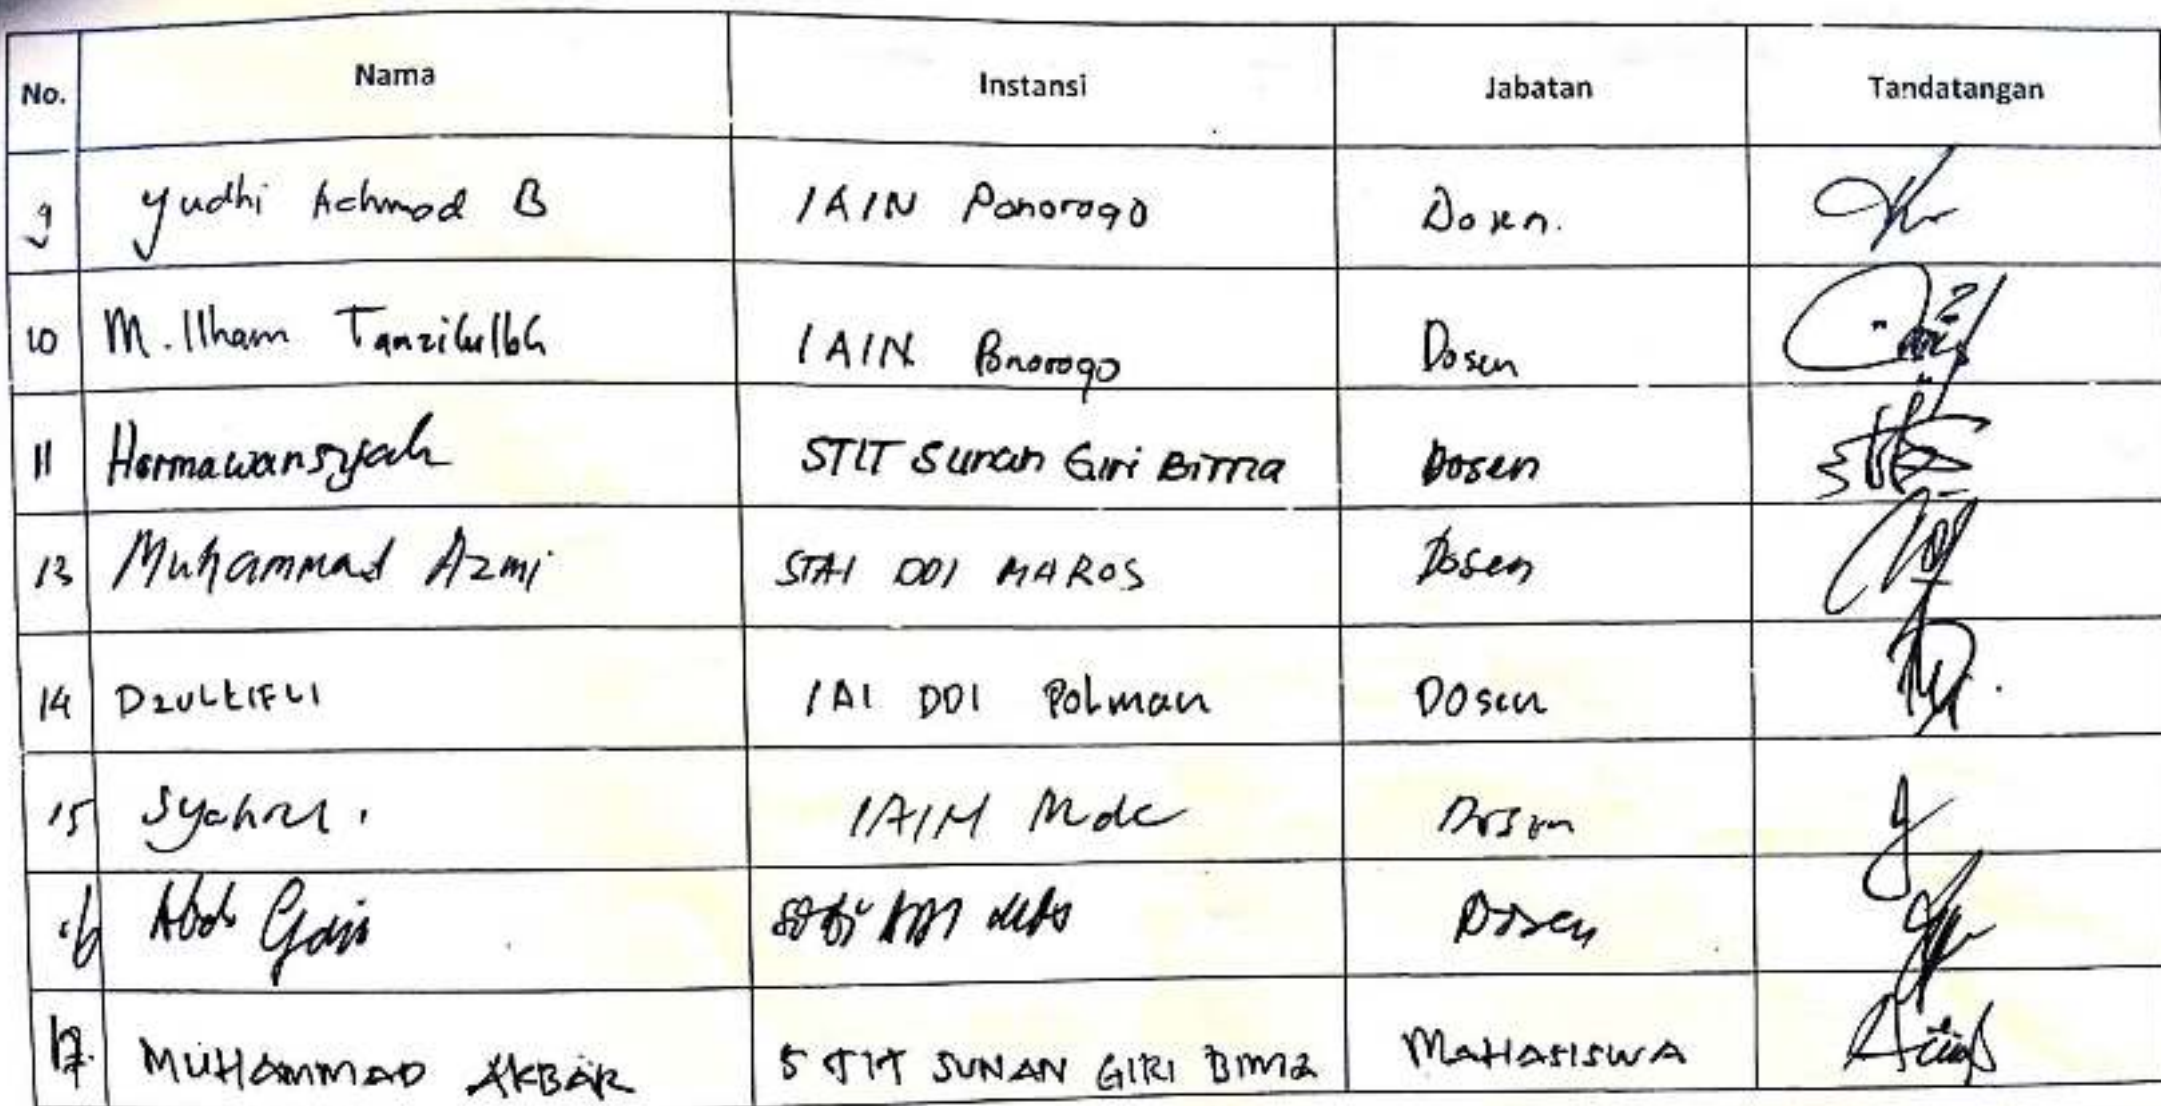 No. Nama Instansi Jabatan Tandatangan
9 Yudhi Achmad B IAIN Ponorogo Dosen.
10 M. Ilham Tanzilulloh IAIN Ponorogo Dosen
11 Hermawansyah STIT Sunan Giri Bima Dosen
13 Muhammad Azmi STAI DDI MAROS Dosen
14 DZULKIFLI IAI DDI Polman DOsen
15 Syahrul. Dosen
16 Dosen
17. MUHAMMAD AKBAR STIT SUNAN GIRI Bima MAHASISWA